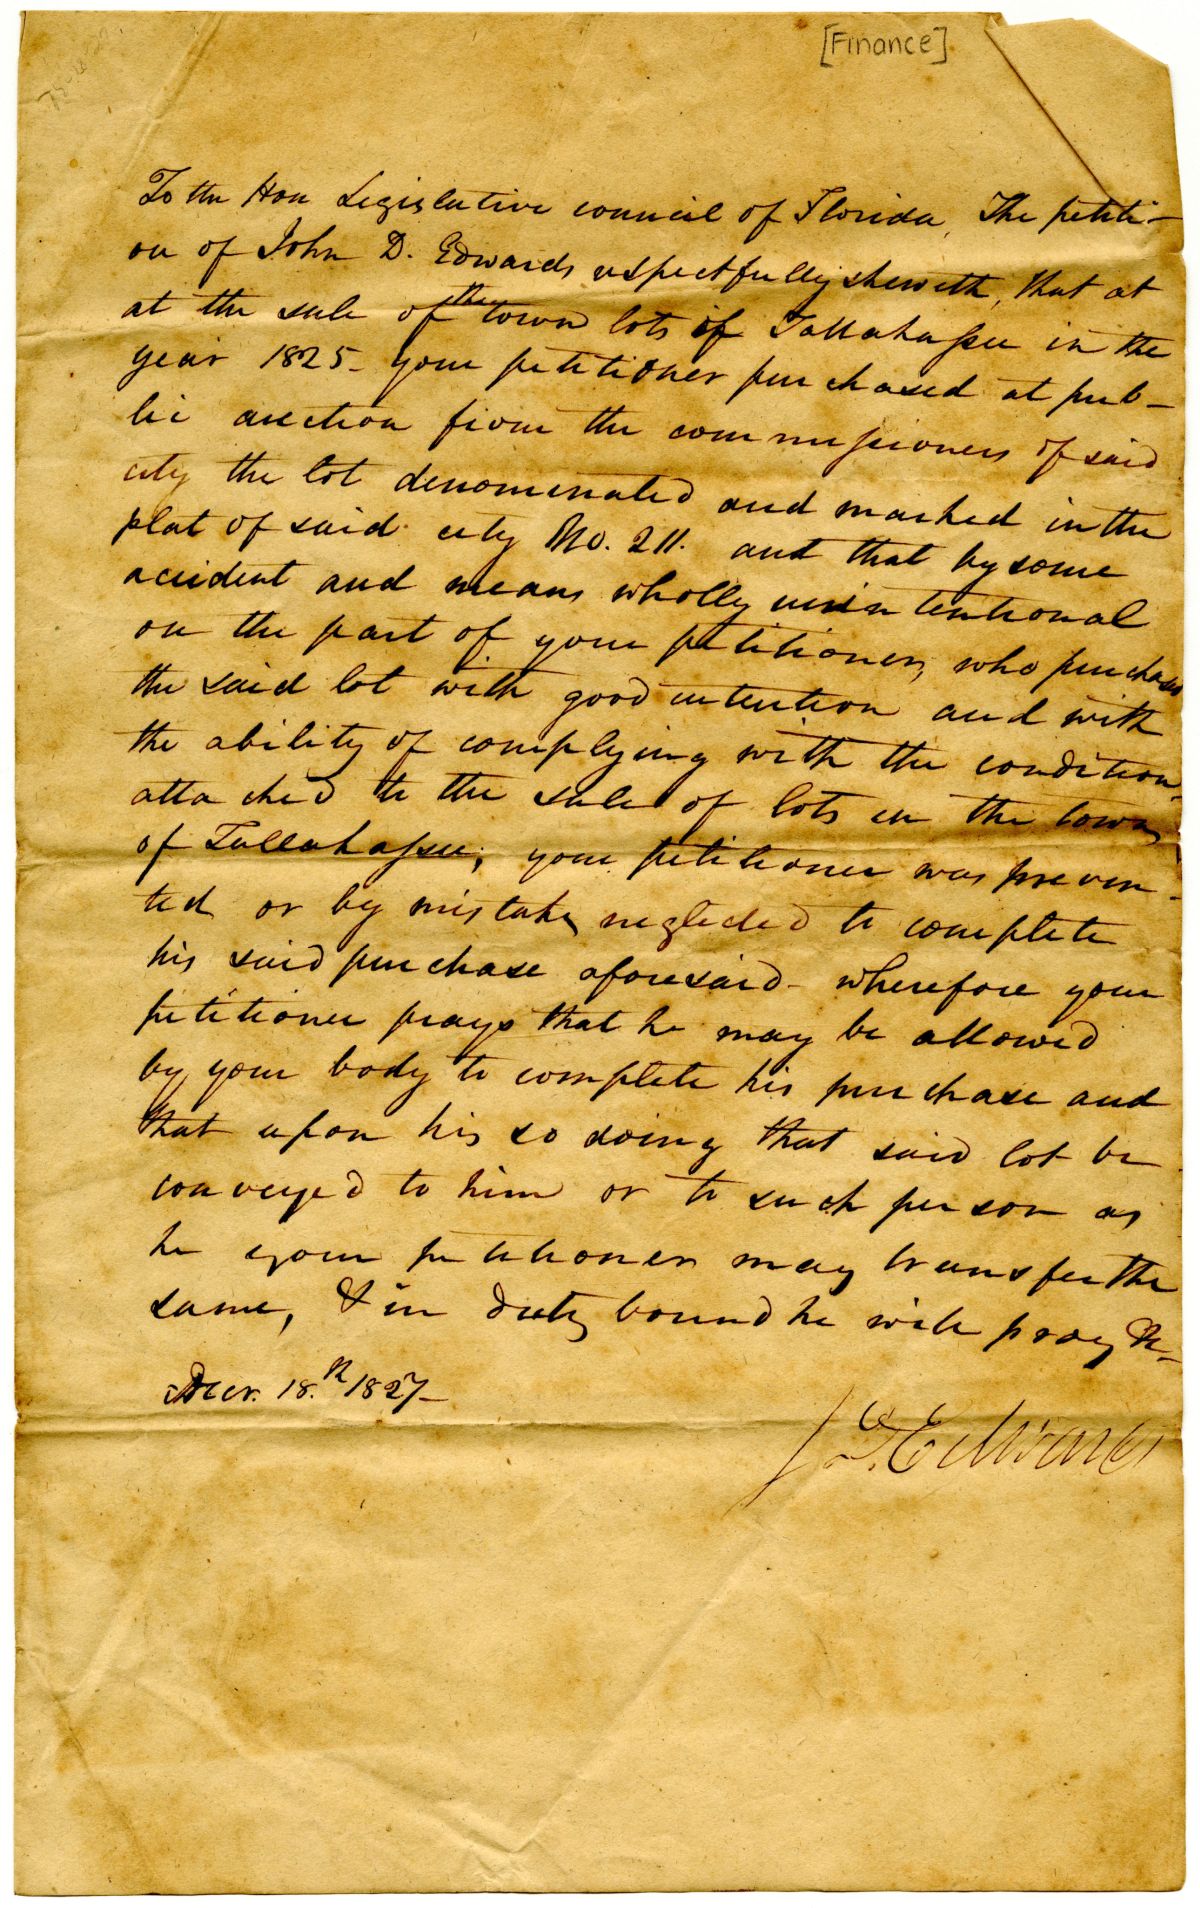 [Finance]
To the Hon Legislative council of Florida, The petiti-
on of John D. Edwards respectfully sheweth, that at
at the sale of the town lots of Tallahassee in the
year 1825 - your petitioner purchased at pub-
lic auction from the commissioners of said
city the lot denominated and marked in the
plat of said city No. 211. and that by some
accident and means wholly unintentional
on the part of your petitioner, who purchased
the said lot with good intention and with
the ability of complying with the condition
attached to the sale of lots in the town
of Tallahassee; your petitioner was preven-
ted or by mistake neglected to complete
his said purchase aforesaid - wherefore your
petitioner prays that he may be allowed
by your body to complete his purchase and
that upon his so doing that said lot be
conveyed to him or to such person as
he your petitioner may transfer the
same, & in duty bound he will pray &c-
Decr. 18.th 1827-
J D. Edwards